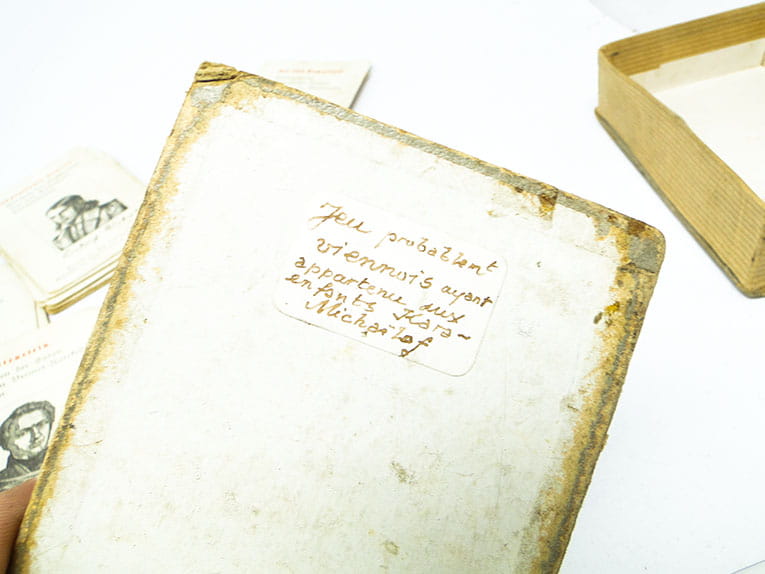 Jeu probablemt
viennois ayant
appartenu aux
enfants Kara-
Michaïlof